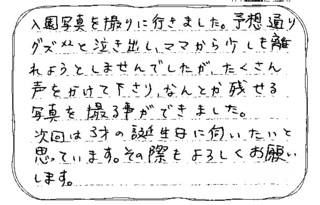 入園写真を撮りに行きました。予想通り
グズグズと泣き出し、ママから少しも離
れようとしませんでしたが、たくさん
声をかけて下さり、なんとか残せる
写真を撮る事ができました。
次回は3才の誕生日に伺いたいと
思っています。その際もよろしくお願い
します。